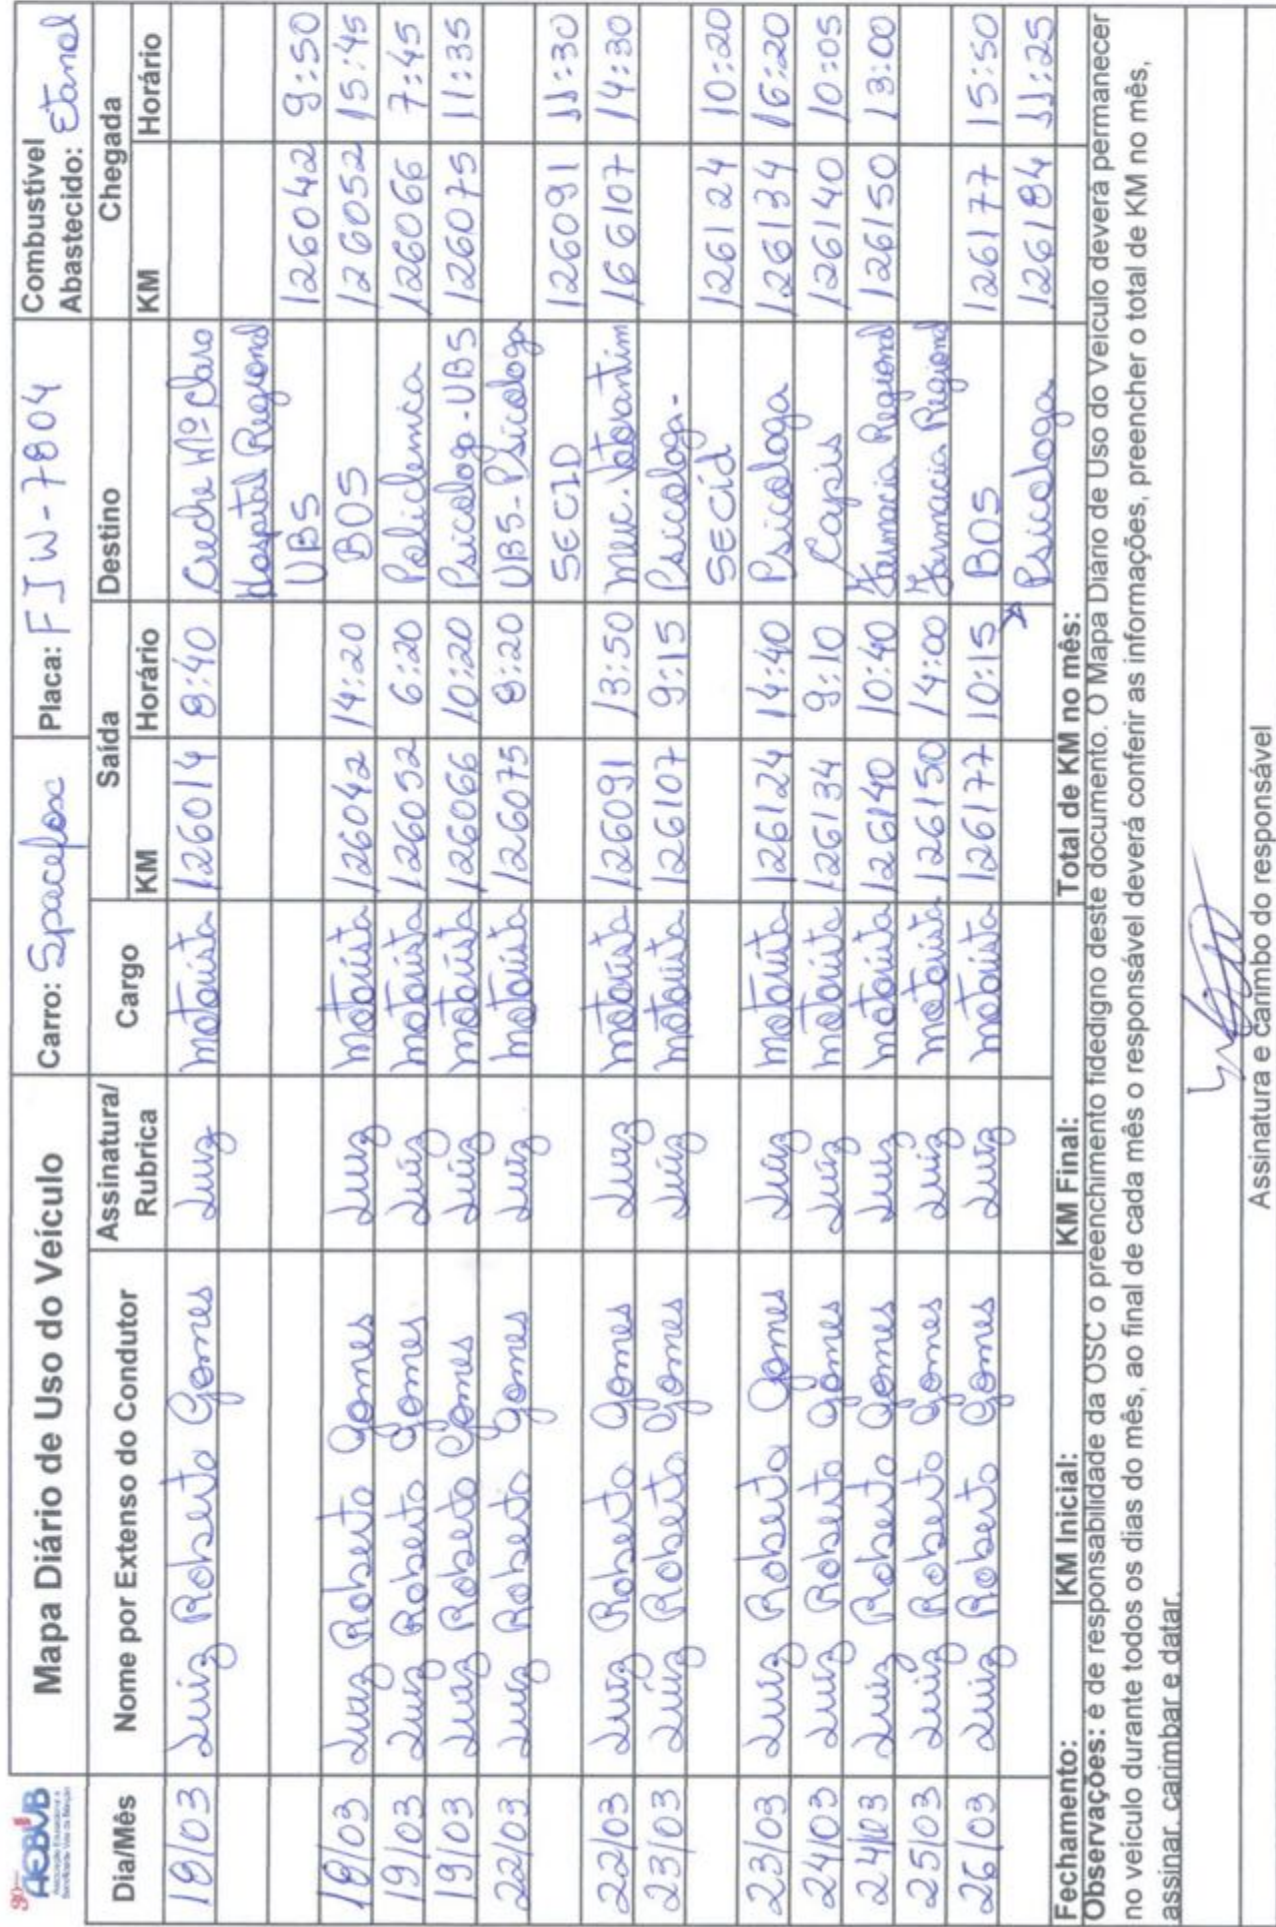 AEBVB
Mapa Diário de Uso do Veículo Carro: Spacefox Placa: FJW-7804 Combustível Abastecido: Etanol
Dia/Mês Nome por Extenso do Condutor Assinatura/ Rubrica Cargo Saída Destino Chegada
KM Horário KM Horário
18/03 Luiz Roberto Gomes Luiz motorista 126014 8:40 Creche Mª Claro
Hospital Regional
UBS 126042 9:50
18/03 Luiz Roberto Gomes Luiz motorista 126042 14:20 BOS 126052 15:45
19/03 Luiz Roberto Gomes Luiz motorista 126052 6:20 Policlenica 126066 7:45
19/03 Luiz Roberto Gomes Luiz motorista 126066 10:20 Psicologa-UBS 126075 11:35
22/03 Luiz Roberto Gomes Luiz motorista 126075 8:20 UBS-Psicologa
SECID 126091 11:30
22/03 Luiz Roberto Gomes Luiz motorista 126091 13:50 Merc. Votorantim 166107 14:30
23/03 Luiz Roberto Gomes Luiz motorista 126107 9:15 Psicologa-
SECid 126124 10:20
23/03 Luiz Roberto Gomes Luiz motorista 126124 14:40 Psicologa 126134 16:20
24/03 Luiz Roberto Gomes Luiz motorista 126134 9:10 Capis 126140 10:05
24/03 Luiz Roberto Gomes Luiz motorista 126140 10:40 Farmacia Regional 126150 13:00
25/03 Luiz Roberto Gomes Luiz motorista 126150 14:00 Farmacia Regional
26/03 Luiz Roberto Gomes Luiz motorista 126177 10:15 BOS 126177 15:50
Psicologa 126184 11:25
Fechamento: KM Inicial: KM Final: Total de KM no mês:
Observações: é de responsabilidade da OSC o preenchimento fidedigno deste documento. O Mapa Diário de Uso do Veículo deverá permanecer
no veículo durante todos os dias do mês, ao final de cada mês o responsável deverá conferir as informações, preencher o total de KM no mês,
assinar, carimbar e datar.
Assinatura e Carimbo do responsável